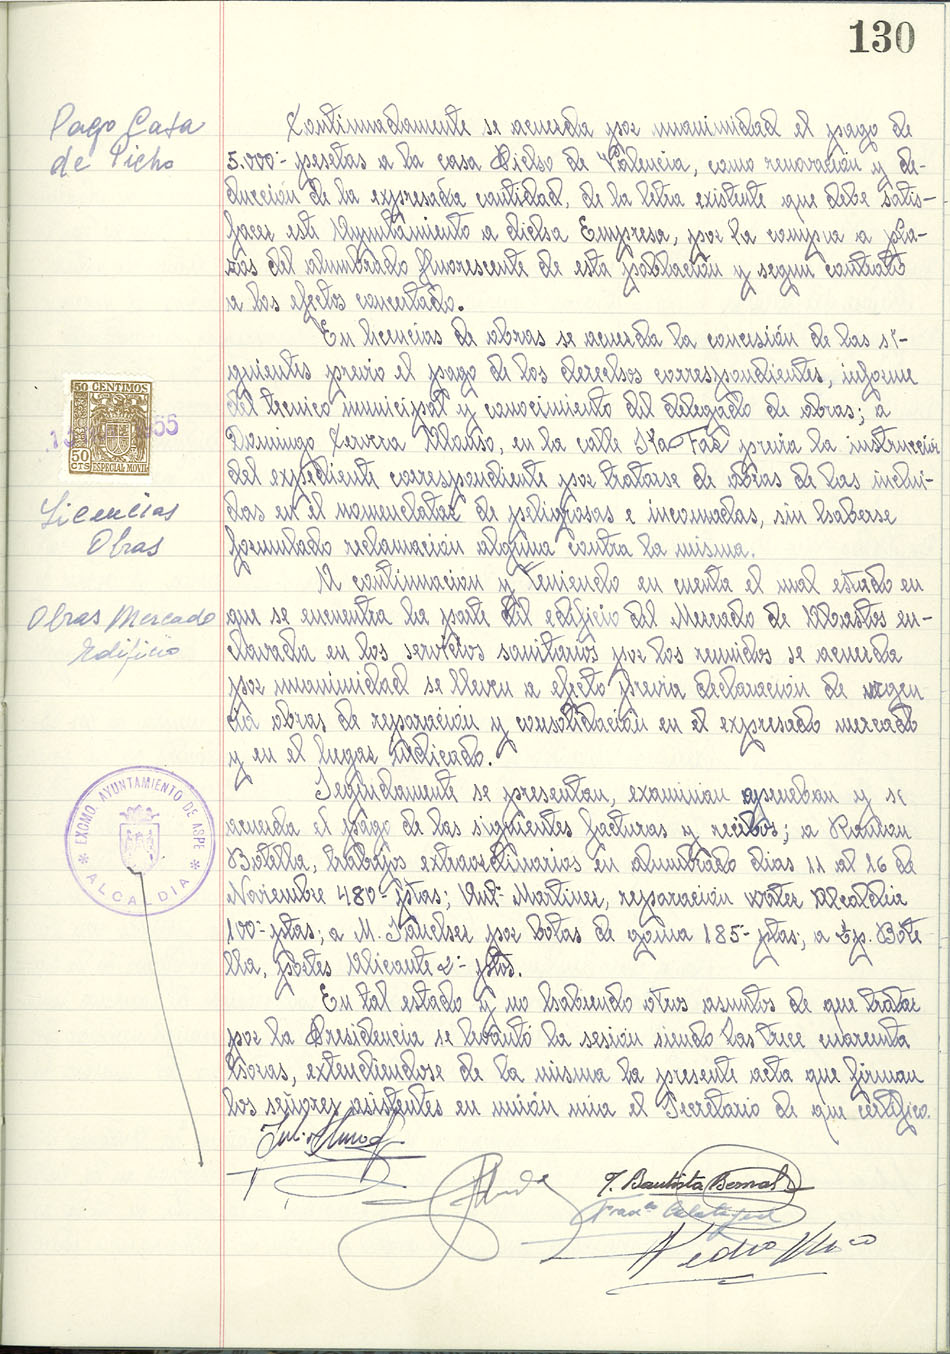 130
Pago Casa
de Picho
Continuadamente se acuerda por unanimidad el pago de
5.000'- pesetas a la casa Picho de Valencia, como renovación y de-
ducción de la expresada cantidad, de la letra existente que debe satis-
facer este Ayuntamiento a dicha Empresa, por la compra a pla-
zos del alumbrado fluorescente de esta población y segun contrato
a los efectos concertado.
En licencias de obras se acuerda la concesión de las si-
guientes previo el pago de los derechos correspondientes, informe
del tecnico municipal y conocimiento del delegado de obras; a
Domingo Cervera Alonso, en la calle Sta Faz previa la instrucción
del expediente correspondiente por tratarse de obras de las inclui-
das en el nomenclator de peligrosas e incomodas, sin haberse
formulado reclamación alguna contra la misma.
A continuacion y teniendo en cuenta el mal estado en
que se encuentra la parte del edificio del Mercado de Abastos en-
clavada en los servicios sanitarios por los reunidos se acuerda
por unanimidad se lleven a efecto previa declaración de urgen
cia obras de reparación y consolidación en el expresado mercado
y en el lugar indicado.
Seguidamente se presentan, examinan aprueban y se
acuerda el pago de las siguientes facturas y recibos; a Ramon
Botella, trabajos extraordinarios en alumbrado dias 11 al 16 de
Noviembre 480'- ptas; Antº Martinez, reparación water Alcaldia
100'- ptas; a M. Sanchez por botas de goma 185'- ptas; a Bote
lla, portes Alicante 2'- ptas.
En tal estado y no habiendo otros asuntos de que tratar
por la Presidencia se levantó la sesión siendo las trece cuarenta
horas, extendiendose de la misma la presente acta que firman
los señores asistentes en unión mia el Secretario de que certifico.
50 CENTIMOS
50
CTS ESPECIAL MOVIL
55
Licencias
Obras
Obras Mercado
Edificio
EXCMO. AYUNTAMIENTO DE ASPE
* ALCALDIA *
J. Bautista Bernal
Franco Calatayud
Pedro